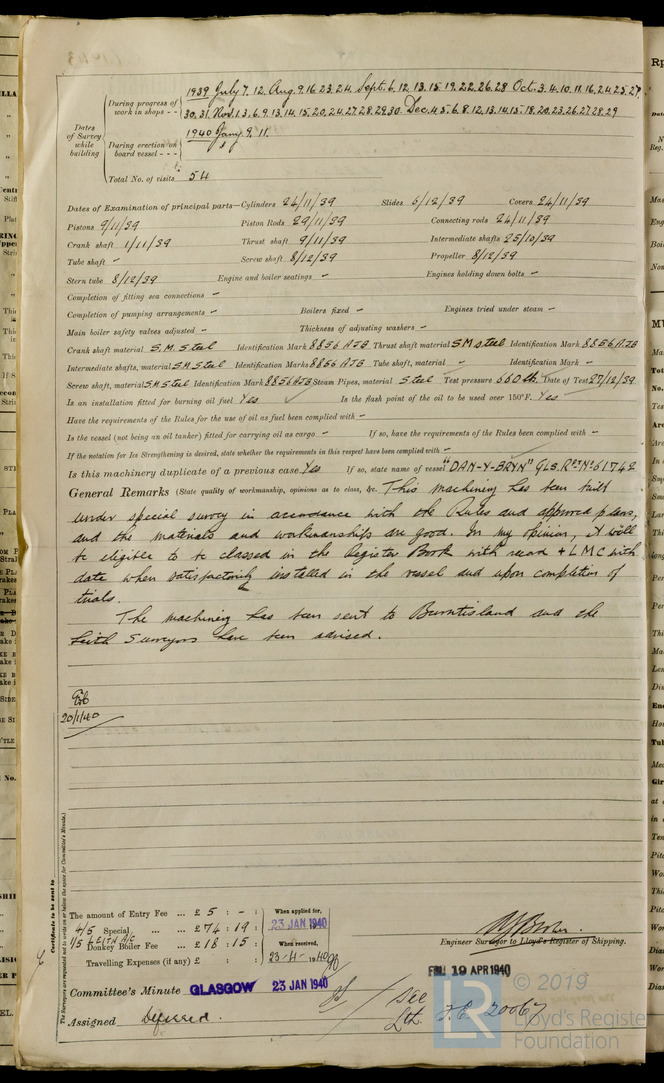 1939 July 7. 12. Aug. 9. 16. 23. 24. Sept. 6. 12. 13. 15. 19. 22. 26. 28 Oct. 3. 4. 10. 11. 16. 24. 25. 27.
During progress of work in shops - - 30. 31. Nov. 1. 3. 6. 9. 13. 14. 15. 20. 24. 27. 28. 29. 30. Dec. 4. 5. 6. 8. 12. 13. 14. 15. 18. 20. 23. 26. 27. 28. 29
Dates of Survey while building
During erection on board vessel - - - 1940 Jany. 9. 11.
Total No. of visits 54
Dates of Examination of principal parts—Cylinders 24/11/39 Slides 6/12/39 Covers 24/11/39
Pistons 9/11/39 Piston Rods 29/11/39 Connecting rods 24/11/39
Crank shaft 1/11/39 Thrust shaft 9/11/39 Intermediate shafts 25/10/39
Tube shaft - Screw shaft 8/12/39 Propeller 8/12/39
Stern tube 8/12/39 Engine and boiler seatings - Engines holding down bolts -
Completion of fitting sea connections -
Completion of pumping arrangements - Boilers fixed - Engines tried under steam -
Main boiler safety valves adjusted - Thickness of adjusting washers -
Crank shaft material S.M. Steel Identification Mark 8856 AJB Thrust shaft material S M steel Identification Mark 8856 AJB
Intermediate shafts, material S M Steel Identification Marks 8856 AJB Tube shaft, material - Identification Mark -
Screw shaft, material S M Steel Identification Mark 8856 AJB Steam Pipes, material Steel Test pressure 660 lb. Date of Test 27/12/39
Is an installation fitted for burning oil fuel Yes Is the flash point of the oil to be used over 150°F. Yes
Have the requirements of the Rules for the use of oil as fuel been complied with -
Is the vessel (not being an oil tanker) fitted for carrying oil as cargo - If so, have the requirements of the Rules been complied with -
If the notation for Ice Strengthening is desired, state whether the requirements in this respect have been complied with -
Is this machinery duplicate of a previous case Yes If so, state name of vessel "DAN-Y-BRYN" GLS. RPT No 61742
General Remarks (State quality of workmanship, opinions as to class, &c. This machinery has been built
under special survey in accordance with the Rules and approved plans,
and the materials and workmanship are good. In my opinion, it will
be eligible to be classed in the Register Book with record + L M C with
date when satisfactorily installed in the vessel and upon completion of
trials.
The machinery has been sent to Burntisland and the
Leith Surveyors have been advised.
20/1/40
Certificate to be sent to
(The Surveyors are requested not to write on or below the space for Committee's Minute.)
The amount of Entry Fee ... £ 5 : - : When applied for,
4/5 Special ... ... £ 74 : 19 : 23 JAN 1940
1/5 LEITH A/C Donkey Boiler Fee ... £ 18 : 15 : When received,
Travelling Expenses (if any) £ : : 23-4-1940
Engineer Surveyor to Lloyd's Register of Shipping.
FRI. 19 APR 1940
Committee's Minute GLASGOW 23 JAN 1940
Assigned Deferred.
See
Lth. F.E. 20067
© 2019
Lloyd's Register
Foundation